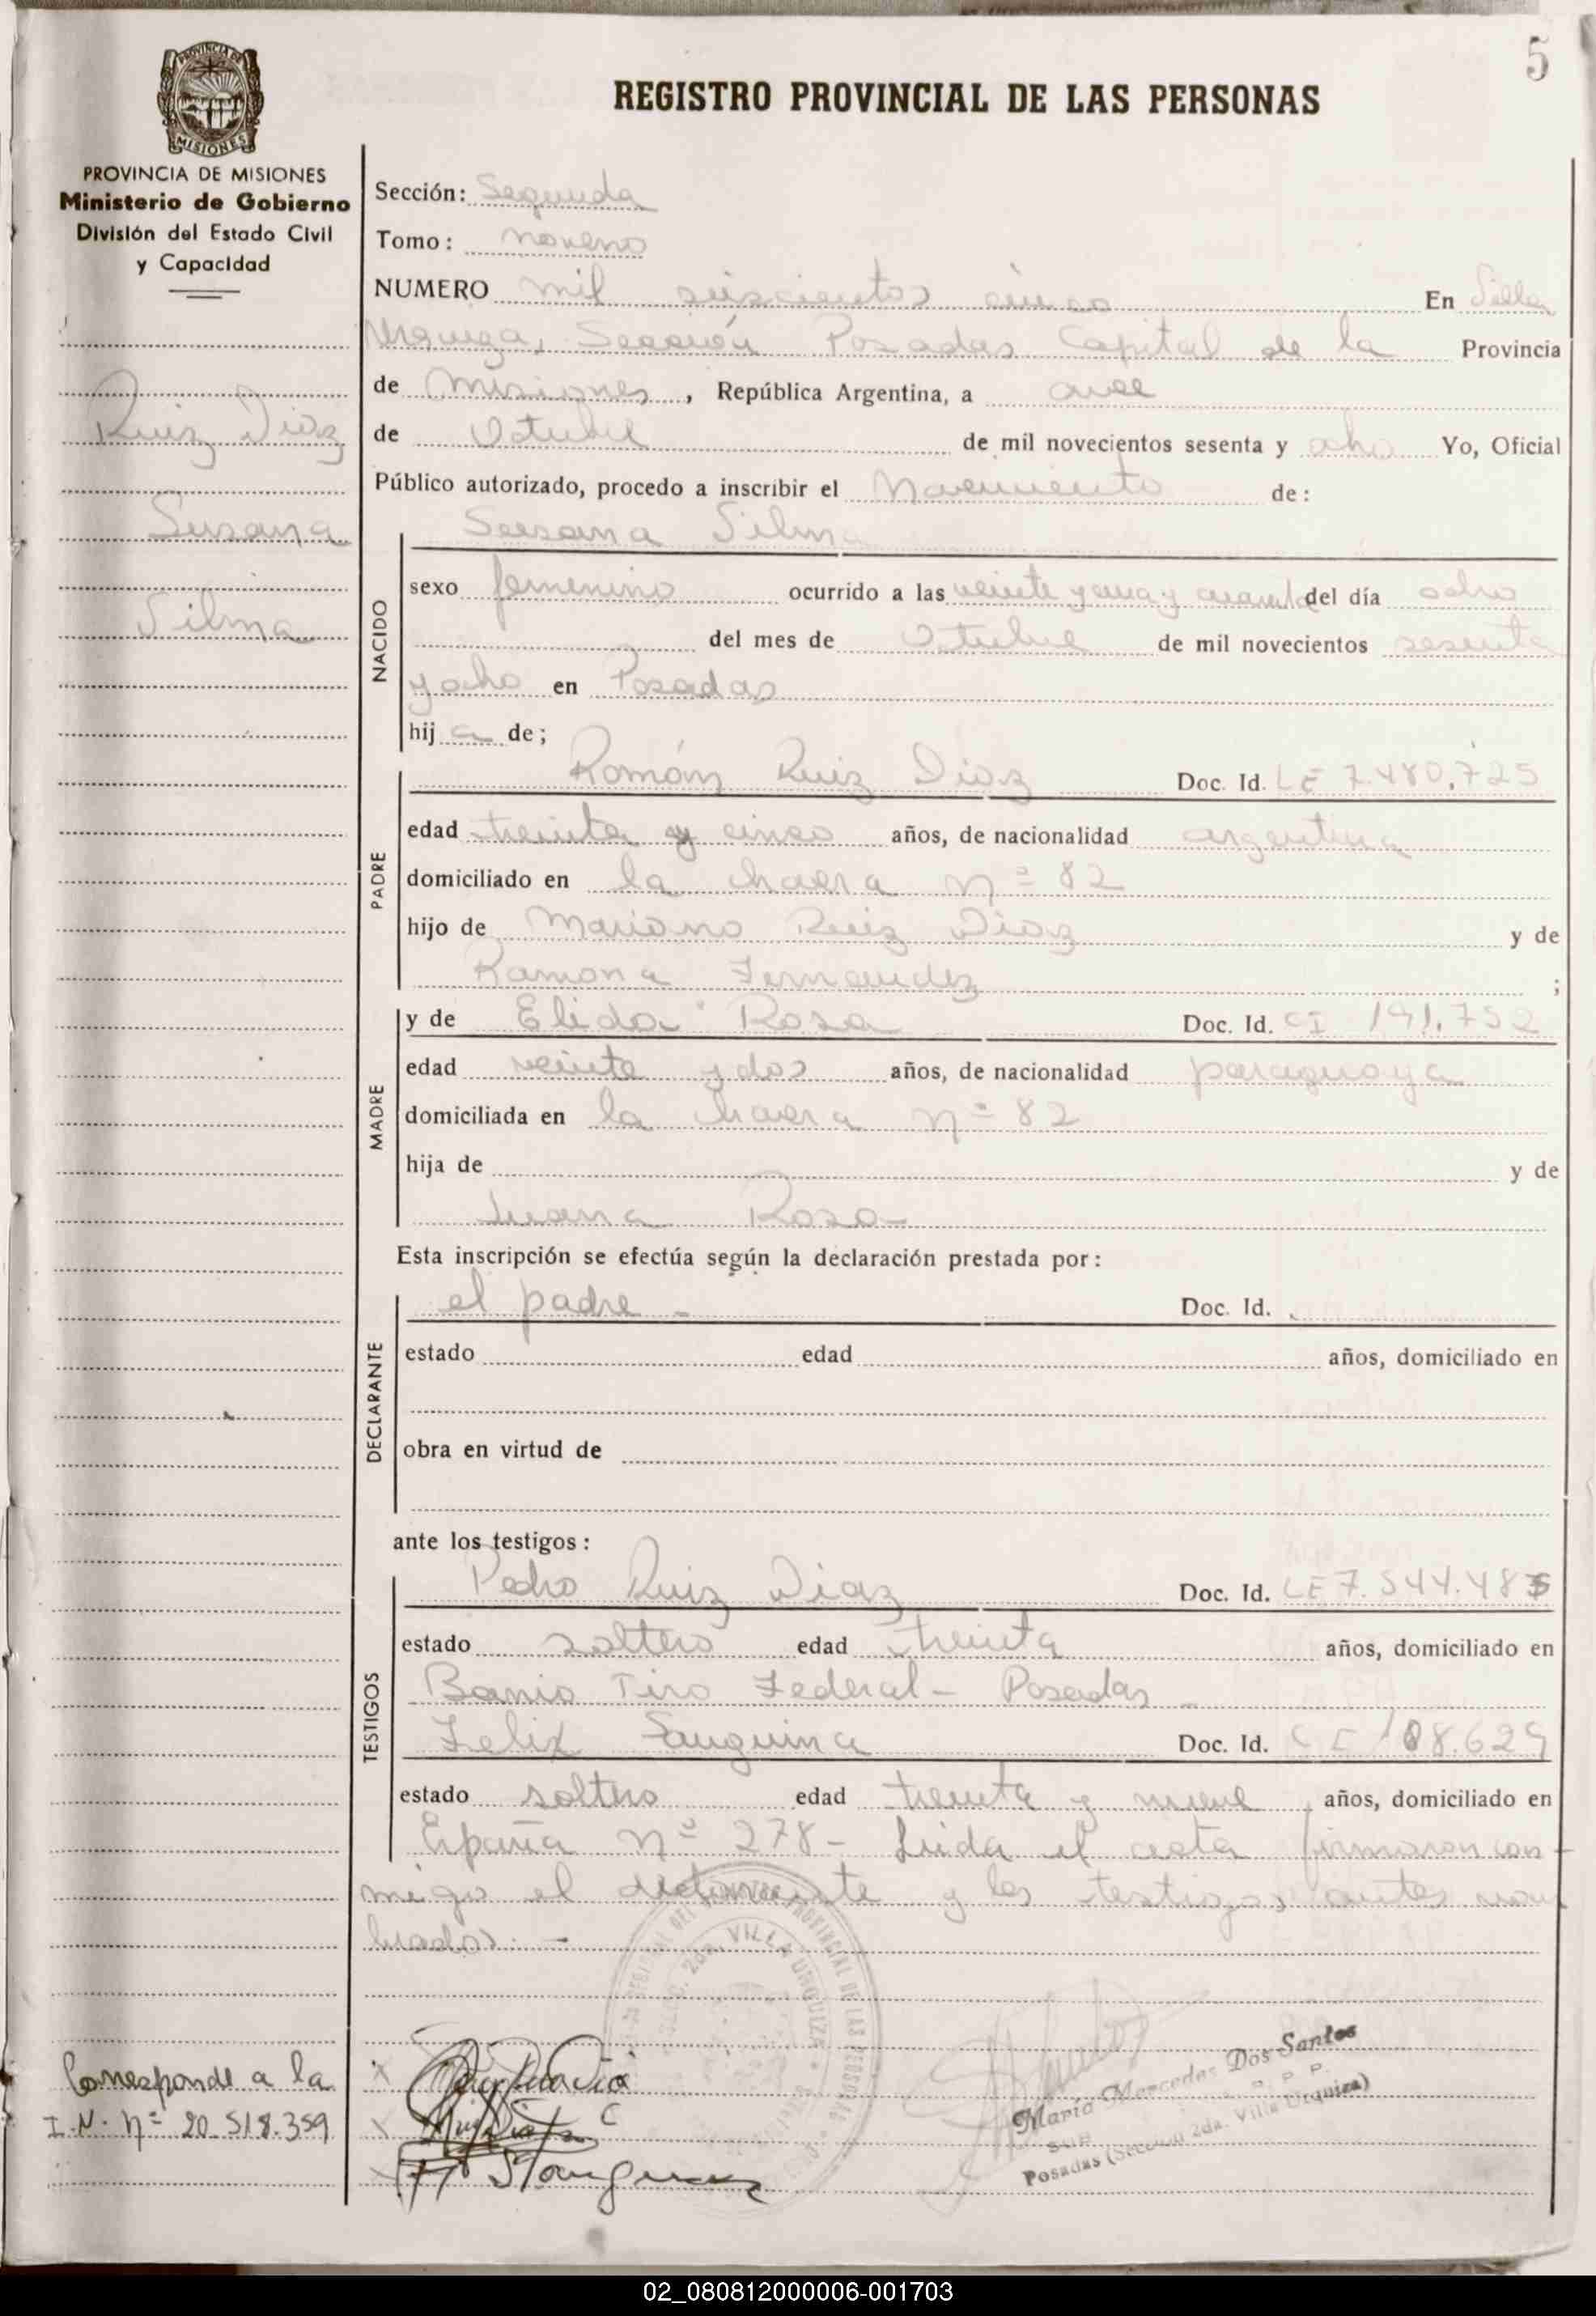 5
PROVINCIA DE MISIONES
MISIONES
REGISTRO PROVINCIAL DE LAS PERSONAS
PROVINCIA DE MISIONES
Ministerio de Gobierno
División del Estado Civil
y Capacidad
Ruiz Diaz
Susana
Silma
Sección: Segunda
Tomo: noveno
NUMERO mil seiscientos cinco En Villa
Urquiza, Sección Posadas Capital de la Provincia
de Misiones, República Argentina, a once
de Octubre de mil novecientos sesenta y ocho Yo, Oficial
Público autorizado, procedo a inscribir el Nacimiento de:
NACIDO
Susana Silma
sexo femenino ocurrido a las veinte y una y cuarenta del día ocho
del mes de Octubre de mil novecientos sesenta
y ocho en Posadas
hij a de;
PADRE
Román Ruiz Diaz Doc. Id. LE 7.480.725
edad treinta y cinco años, de nacionalidad argentina
domiciliado en la chacra nº 82
hijo de Mariano Ruiz Diaz y de
Ramona Fernandez ;
MADRE
y de Elida Rosa Doc. Id. CI 191.752
edad veinte y dos años, de nacionalidad paraguaya
domiciliada en la chacra nº 82
hija de y de
Juana Rosa
Esta inscripción se efectúa según la declaración prestada por:
DECLARANTE
el padre - Doc. Id.
estado edad años, domiciliado en
obra en virtud de
ante los testigos:
TESTIGOS
Pedro Ruiz Diaz Doc. Id. LE 7.544.485
estado soltero edad treinta años, domiciliado en
Barrio Tiro Federal - Posadas -
Felix Sanguina Doc. Id. 108.629
estado soltero edad treinta y nueve, años, domiciliado en
España nº 278 - Leida el acta firmaron con-
migo el declarante y los testigos antes nom
brados. -
VILLA URQUIZA
María Mercedes Dos Santos
Posadas (Sección 2da. Villa Urquiza)
Corresponde a la
I.N. nº 20.518.359
02_080812000006-001703